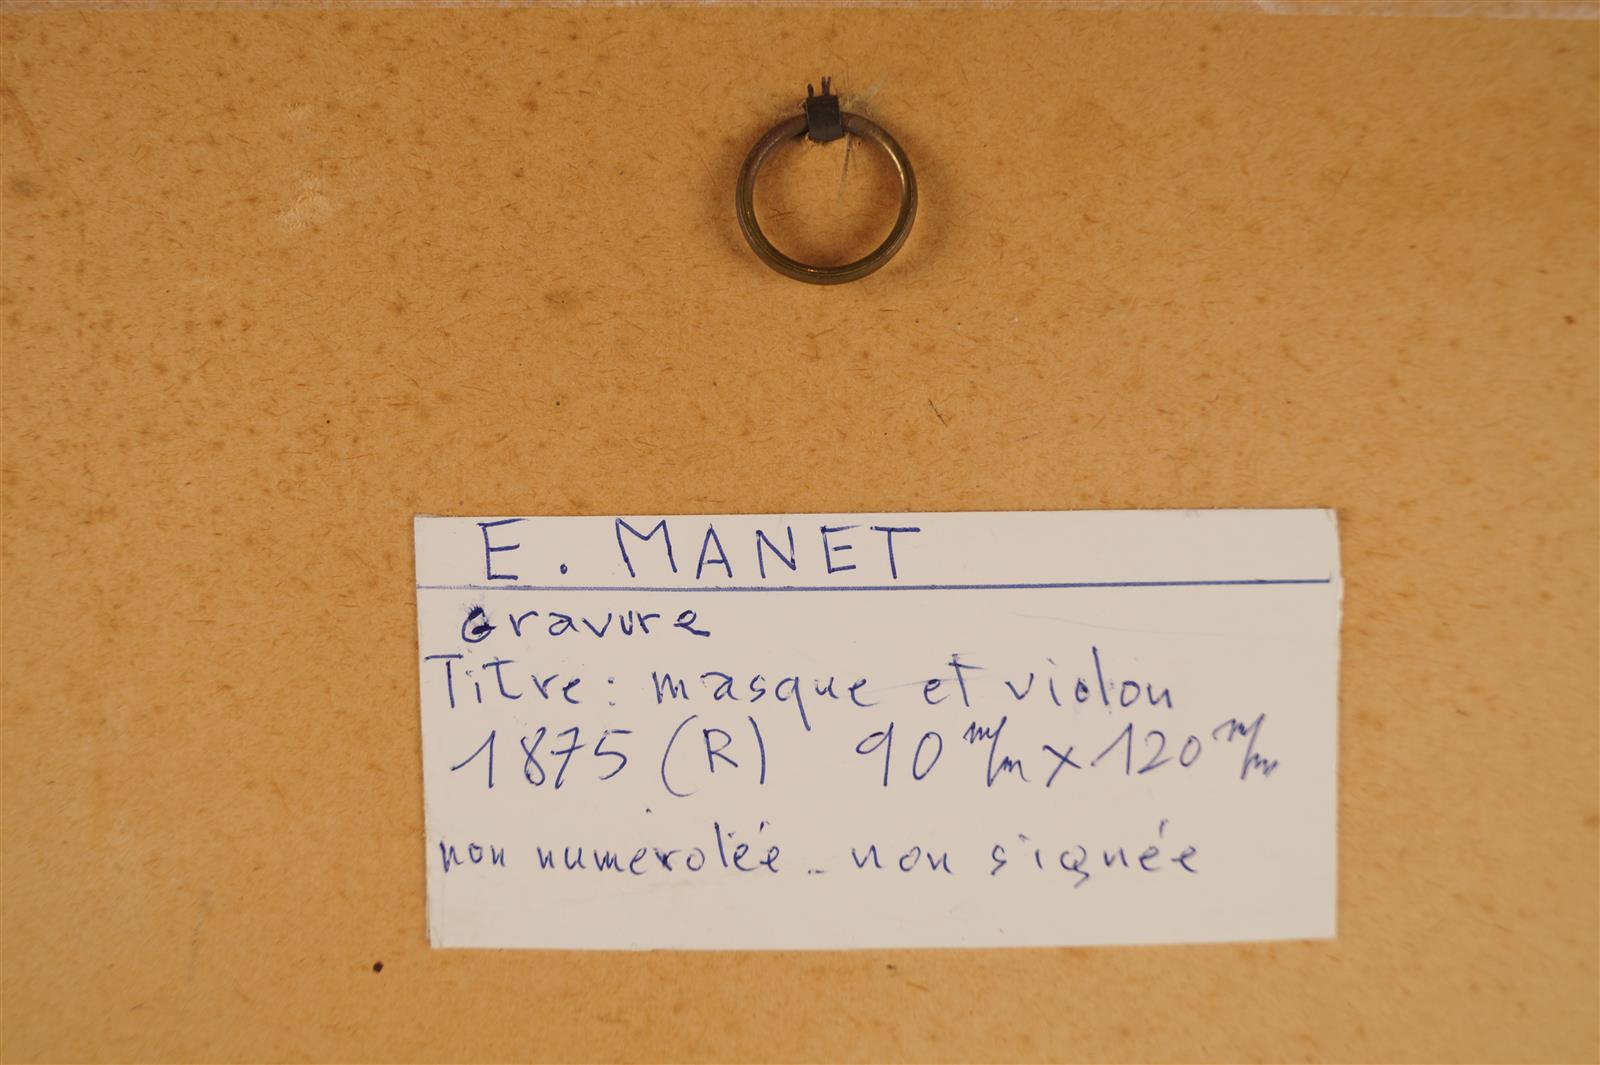 E. MANET
Gravure
Titre: masque et violon
1875 (R) 90 m/m x 120 m/m
non numerotée - non signée